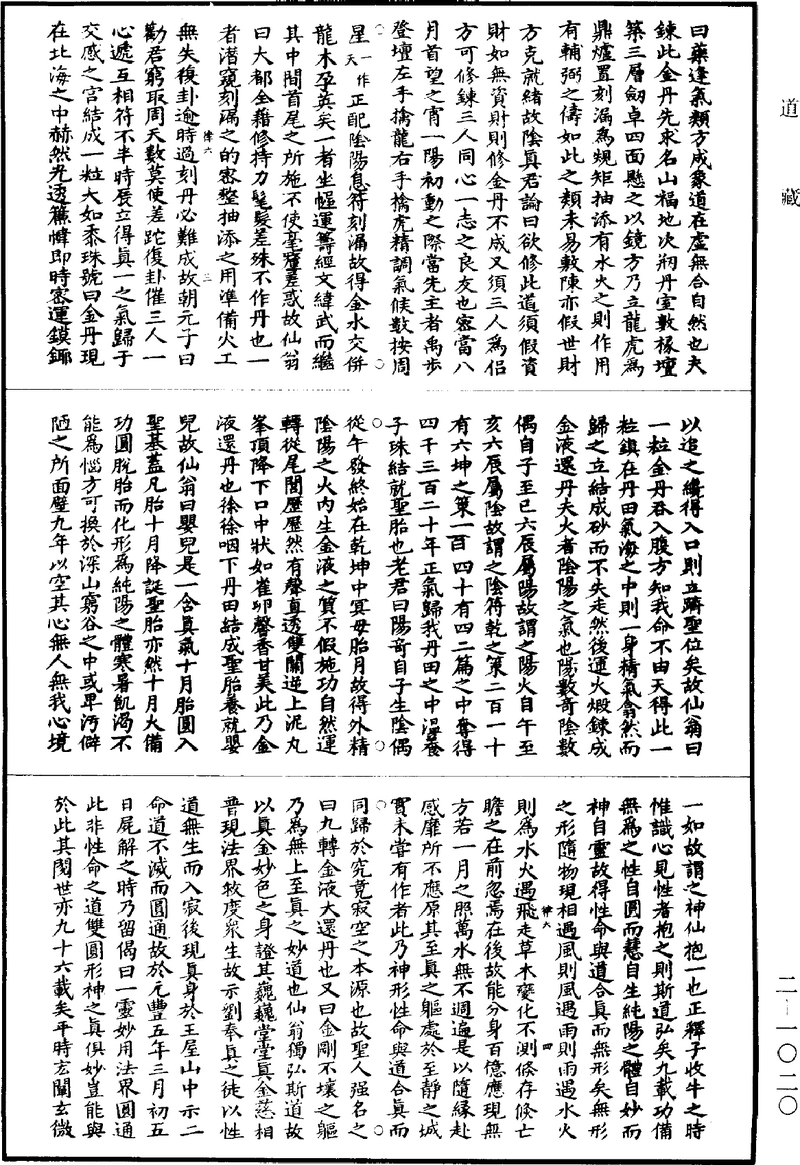 道藏
二—一〇二〇
曰藥逢氣類方成象道在虛無合自然也夫
鍊此金丹先求名山福地次剏丹室數椽壇
築三層劒卓四面懸之以鏡方乃立龍虎爲
鼎爐置刻漏爲規矩抽添有水火之則作用
有輔弼之儔如此之類未易敷陳亦假世財
方克就緒故陰真君論曰欲修此道須假資
財如無資財則修金丹不成又須三人爲侶
方可修鍊三人同心一志之良友也密當八
月首望之宵一陽初動之際當先主者禹步
登壇左手擒龍右手擒虎精調氣候數按周
星一作天正配陰陽息符刻漏故得金水交併
龍木孕英矣一者坐幄運籌經文緯武而繼
其中間首尾之所施不使毫釐差惑故仙翁
曰大都全藉修持力毫髮差殊不作丹也一
者潛窺刻漏之的密整抽添之用準備火工
律六
三
無失復卦逾時過刻丹必難成故朝元子曰
勸君窮取周天數莫使差跎復卦催三人一
心遞互相符不半時辰立得真一之氣歸于
交感之宮結成一粒大如黍珠號曰金丹現
在北海之中赫然光透簾幃即時密運鏌鎁
以追之纔得入口則立躋聖位矣故仙翁曰
一粒金丹吞入腹方知我命不由天得此一
粒鎮在丹田氣海之中則一身精氣翕然而
歸之立結成砂而不失走然後運火煅鍊成
金液還丹夫火者陰陽之氣也陽數奇陰數
偶自子至巳六辰屬陽故謂之陽火自午至
亥六辰屬陰故謂之陰符乾之策二百一十
有六坤之策一百四十有四二篇之中奪得
四千三百二十年正氣歸我丹田之中温養
子珠結就聖胎也老君曰陽奇自子生陰偶
從午發終始在乾坤中冥毋胎月故得外精
陰陽之火内生金液之質不假施功自然運
轉從尾閭歷歷然有聲直透雙關逆上泥丸
峯頂降下口中狀如雀卵馨香甘美此乃金
液還丹也徐徐咽下丹田結成聖胎養就嬰
兒故仙翁曰嬰兒是一含真氣十月胎圓入
聖基蓋凡胎十月降誕聖胎亦然十月火備
功圓脫胎而化形爲純陽之體寒暑飢渴不
能爲惱方可換於深山窮谷之中或卑汚僻
陋之所面壁九年以空其心無人無我心境
一如故謂之神仙抱一也正釋子收牛之時
惟識心見性者抱之則斯道弘矣九載功備
無爲之性自圓而慧自生純陽之體自妙而
神自靈故得性命與道合真而無形矣無形
之形隨物現相遇風則風遇雨則雨遇水火
律六
四
則爲水火遇飛走草木變化不測倏存倏亡
瞻之在前忽焉在後故能分身百億應現無
方若一月之照萬水無不週遍是以隨緣赴
感靡所不應原其至真之軀處於至靜之域
實未甞有作者此乃神形性命與道合真而
同歸於究竟寂空之本源也故聖人强名之
曰九轉金液大還丹也又曰金剛不壞之軀
乃爲無上至真之妙道也仙翁獨弘斯道故
以真金妙色之身證其巍巍堂堂真金慈相
普現法界救度衆生故示劉奉真之徒以性
道無生而入寂後現真身於王屋山中示二
命道不滅而圓通故於元豐五年三月初五
日屍解之時乃留偈曰一靈妙用法界圓通
此非性命之道雙圓形神之真俱妙豈能與
於此其閱世亦九十六載矣平時宏闡玄微